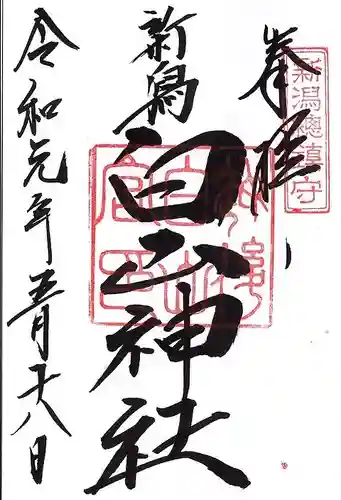 奉拝
新潟總鎮守
新潟
白山神社
令和元年五月十八日